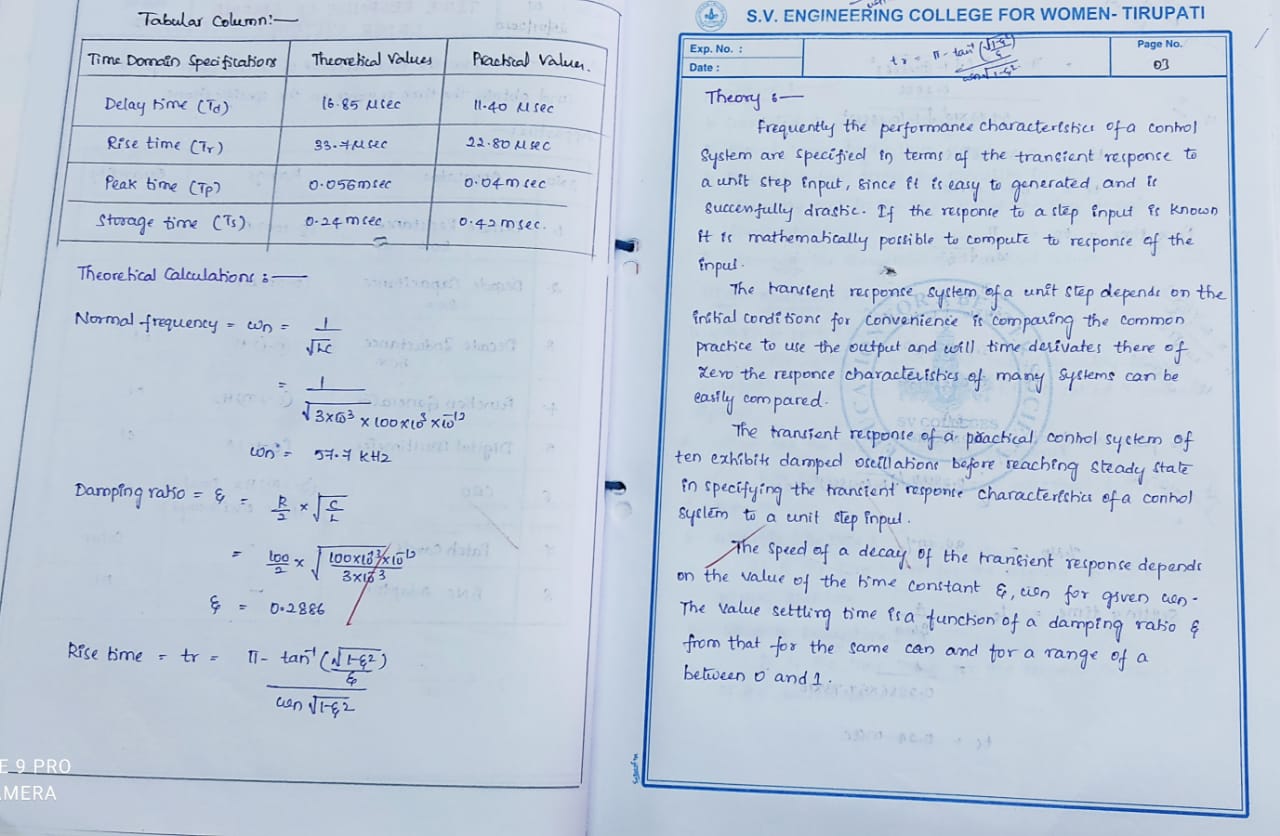 Tabular Column:—
Time Domain Specifications Theoretical Values Practical Values.
Delay time (Td) 16.85 μsec 11.40 μsec
Rise time (Tr) 33.7μsec 22.80 μsec
Peak time (Tp) 0.056msec 0.04msec
Storage time (Ts) 0.24msec 0.42msec.
Theoretical Calculations :—
Normal frequency = ωn = 1/√LC
= 1/√3×10³ × 100×10³ × 10⁻¹²
ωn = 57.7 KHz
Damping ratio = ξ = R/2 × √C/L
= 100/2 × √100×10³×10⁻¹²/3×10³
ξ = 0.2886
Rise time = tr = π - tan⁻¹(√1-ξ²/ξ)/ωn√1-ξ²
E 9 PRO
AMERA
S.V. ENGINEERING COLLEGE FOR WOMEN- TIRUPATI
Exp. No. :
Date :
tr = π - tan⁻¹(√1-ξ²/ξ)/ωn√1-ξ²
Page No.
03
Theory :—
Frequently the performance characteristics of a control
System are specified in terms of the transient response to
a unit step input, since it is easy to generated, and is
Succenfully drastic. If the response to a step input is known
it is mathematically possible to compute to response of the
input.
The transient response system of a unit step depends on the
initial conditions for convenience is comparing the common
practice to use the output and will time derivates there of
zero the response characteristics of many systems can be
easily compared.
The transient response of a practical control system of
ten exhibits damped oscillations before reaching steady state
in specifying the transient response characteristics of a control
system to a unit step input.
The speed of a decay of the transient response depends
on the value of the time constant ξ, ωn for given ωn.
The value settling time is a function of a damping ratio ξ
from that for the same can and for a range of a
between 0 and 1.
SV COLLEGES